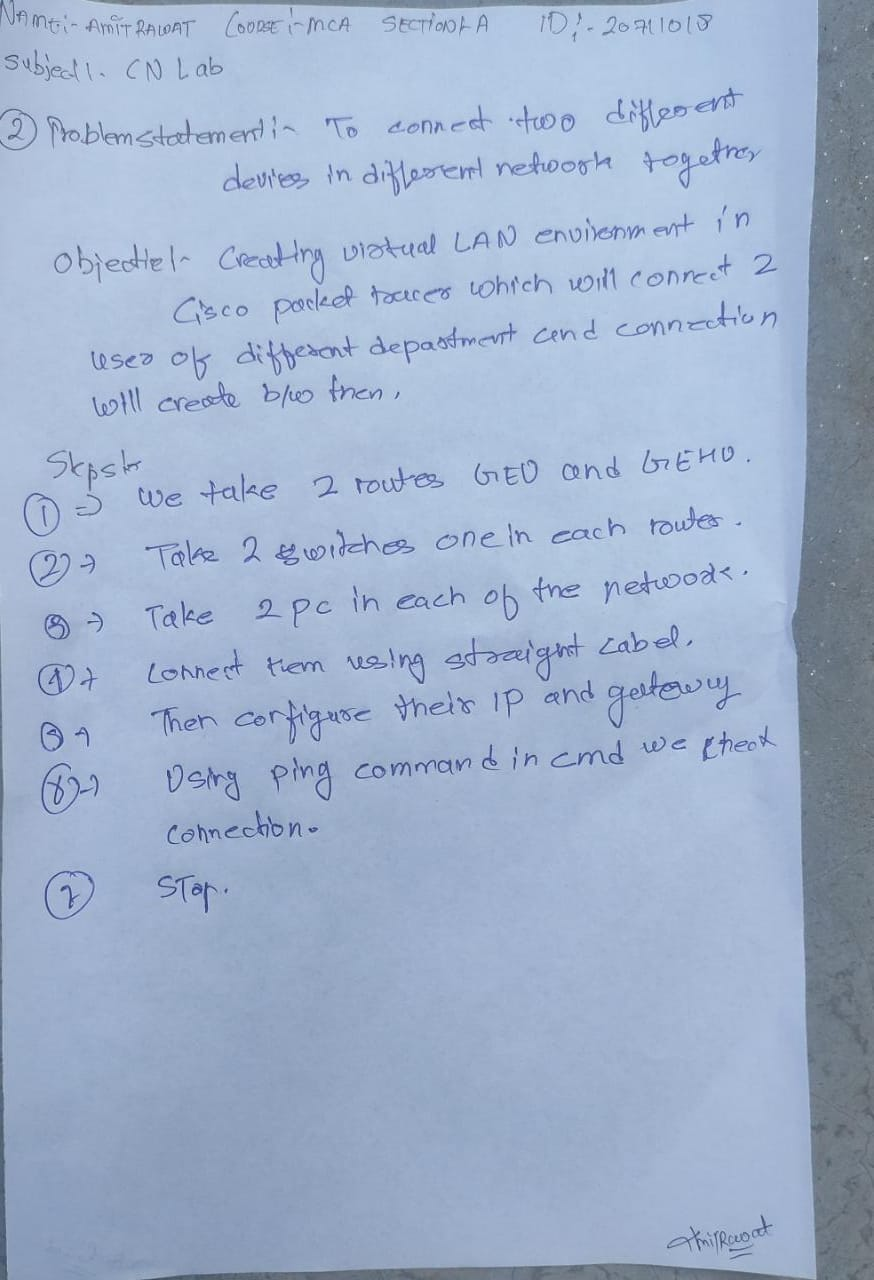 NAME:- AMIT RAWAT COURSE:- MCA SECTION:- A ID:- 20711018
Subject:- CN Lab
② Problem statement:- To connect two different
devices in different network together
Objective:- Creating virtual LAN envirenment in
Cisco packet tracer which will connect 2
user of different department and connection
will create b/w then,
Steps:-
① => We take 2 routes GEU and GEHU.
② → Take 2 switches one in each router.
③ → Take 2 pc in each of the network.
④ → Connect them using straight cabel.
⑤ → Then configure their IP and gateway
⑥ → Using ping command in cmd we check
connection.
⑦ STop.
AmitRawat